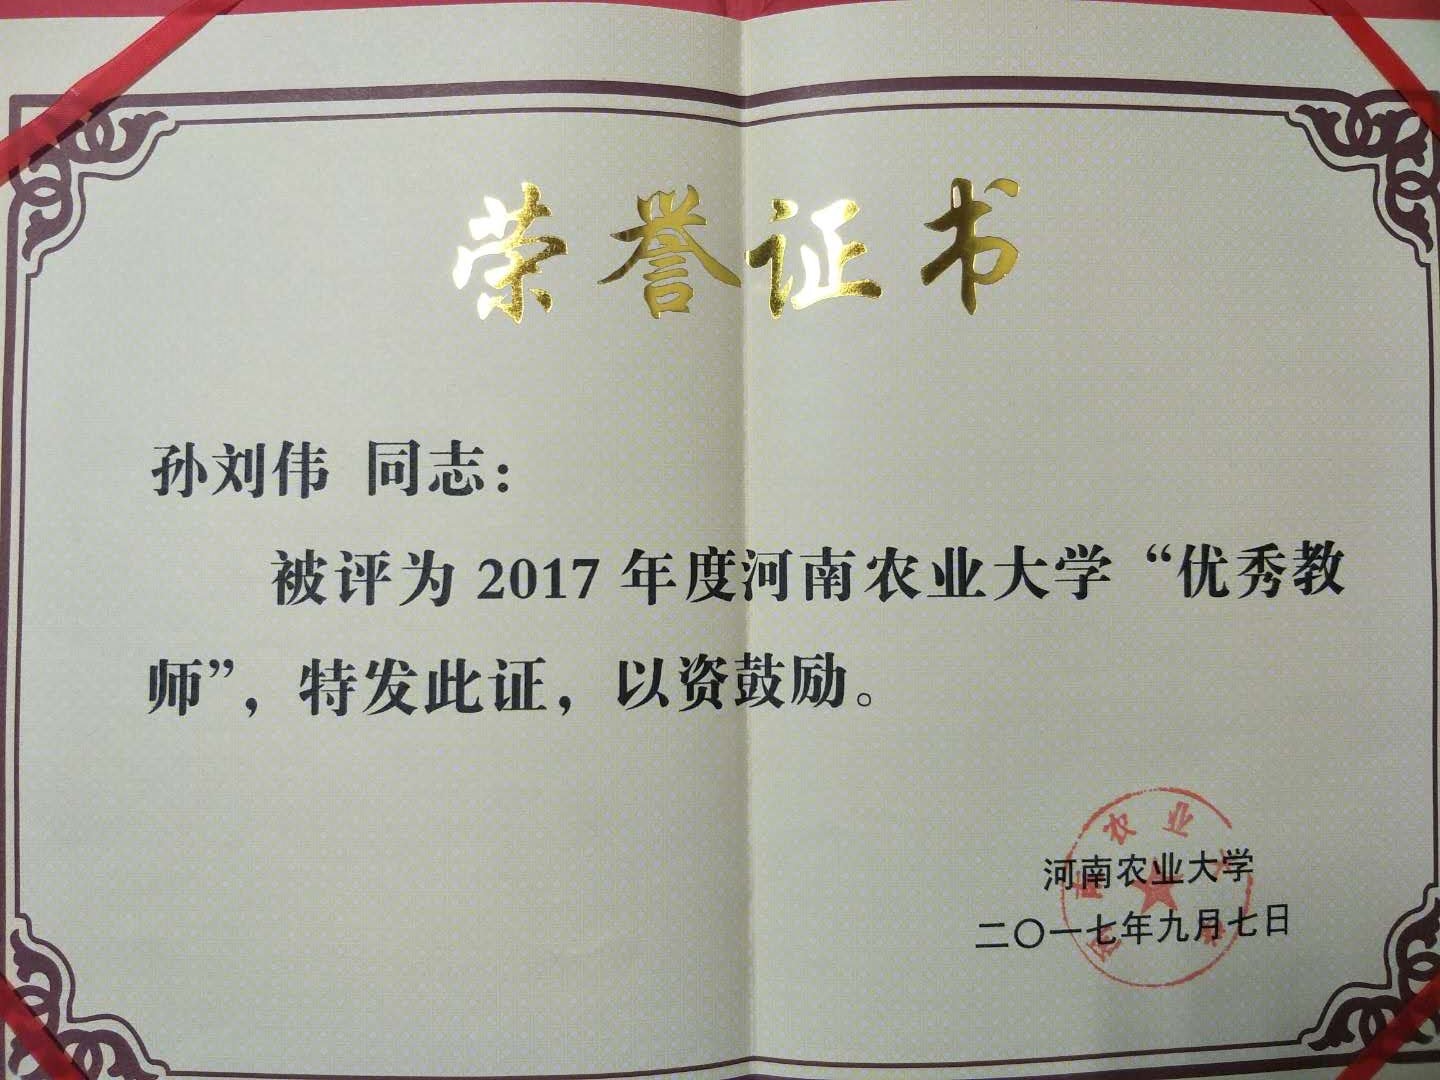 荣誉证书
孙刘伟 同志：
被评为 2017 年度河南农业大学“优秀教
师”，特发此证，以资鼓励。
河南农业大学
二〇一七年九月七日
河南农业大学